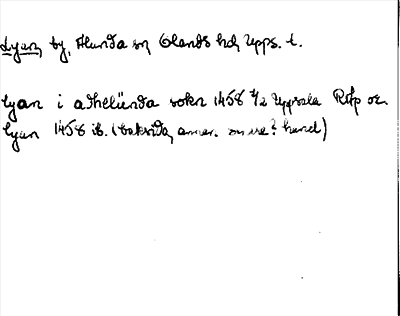 Lyan, by, Alunda sn Olands hd, Upps. l.
lyan i adhelünda sokn 1458 7/2 Uppsala Rkp or.
lyan 1458 ib. (baksida, annan hand)